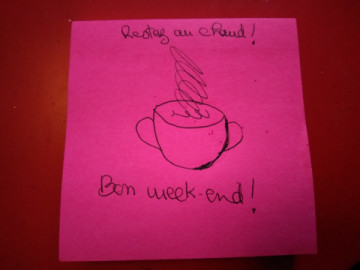 Restez au chaud!
Bon week-end!